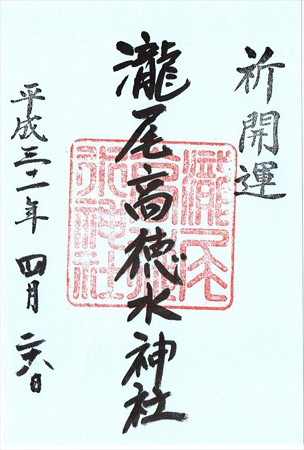 祈開運
瀧尾高徳水神社
平成三十一年四月二十八日
瀧尾高徳水神社